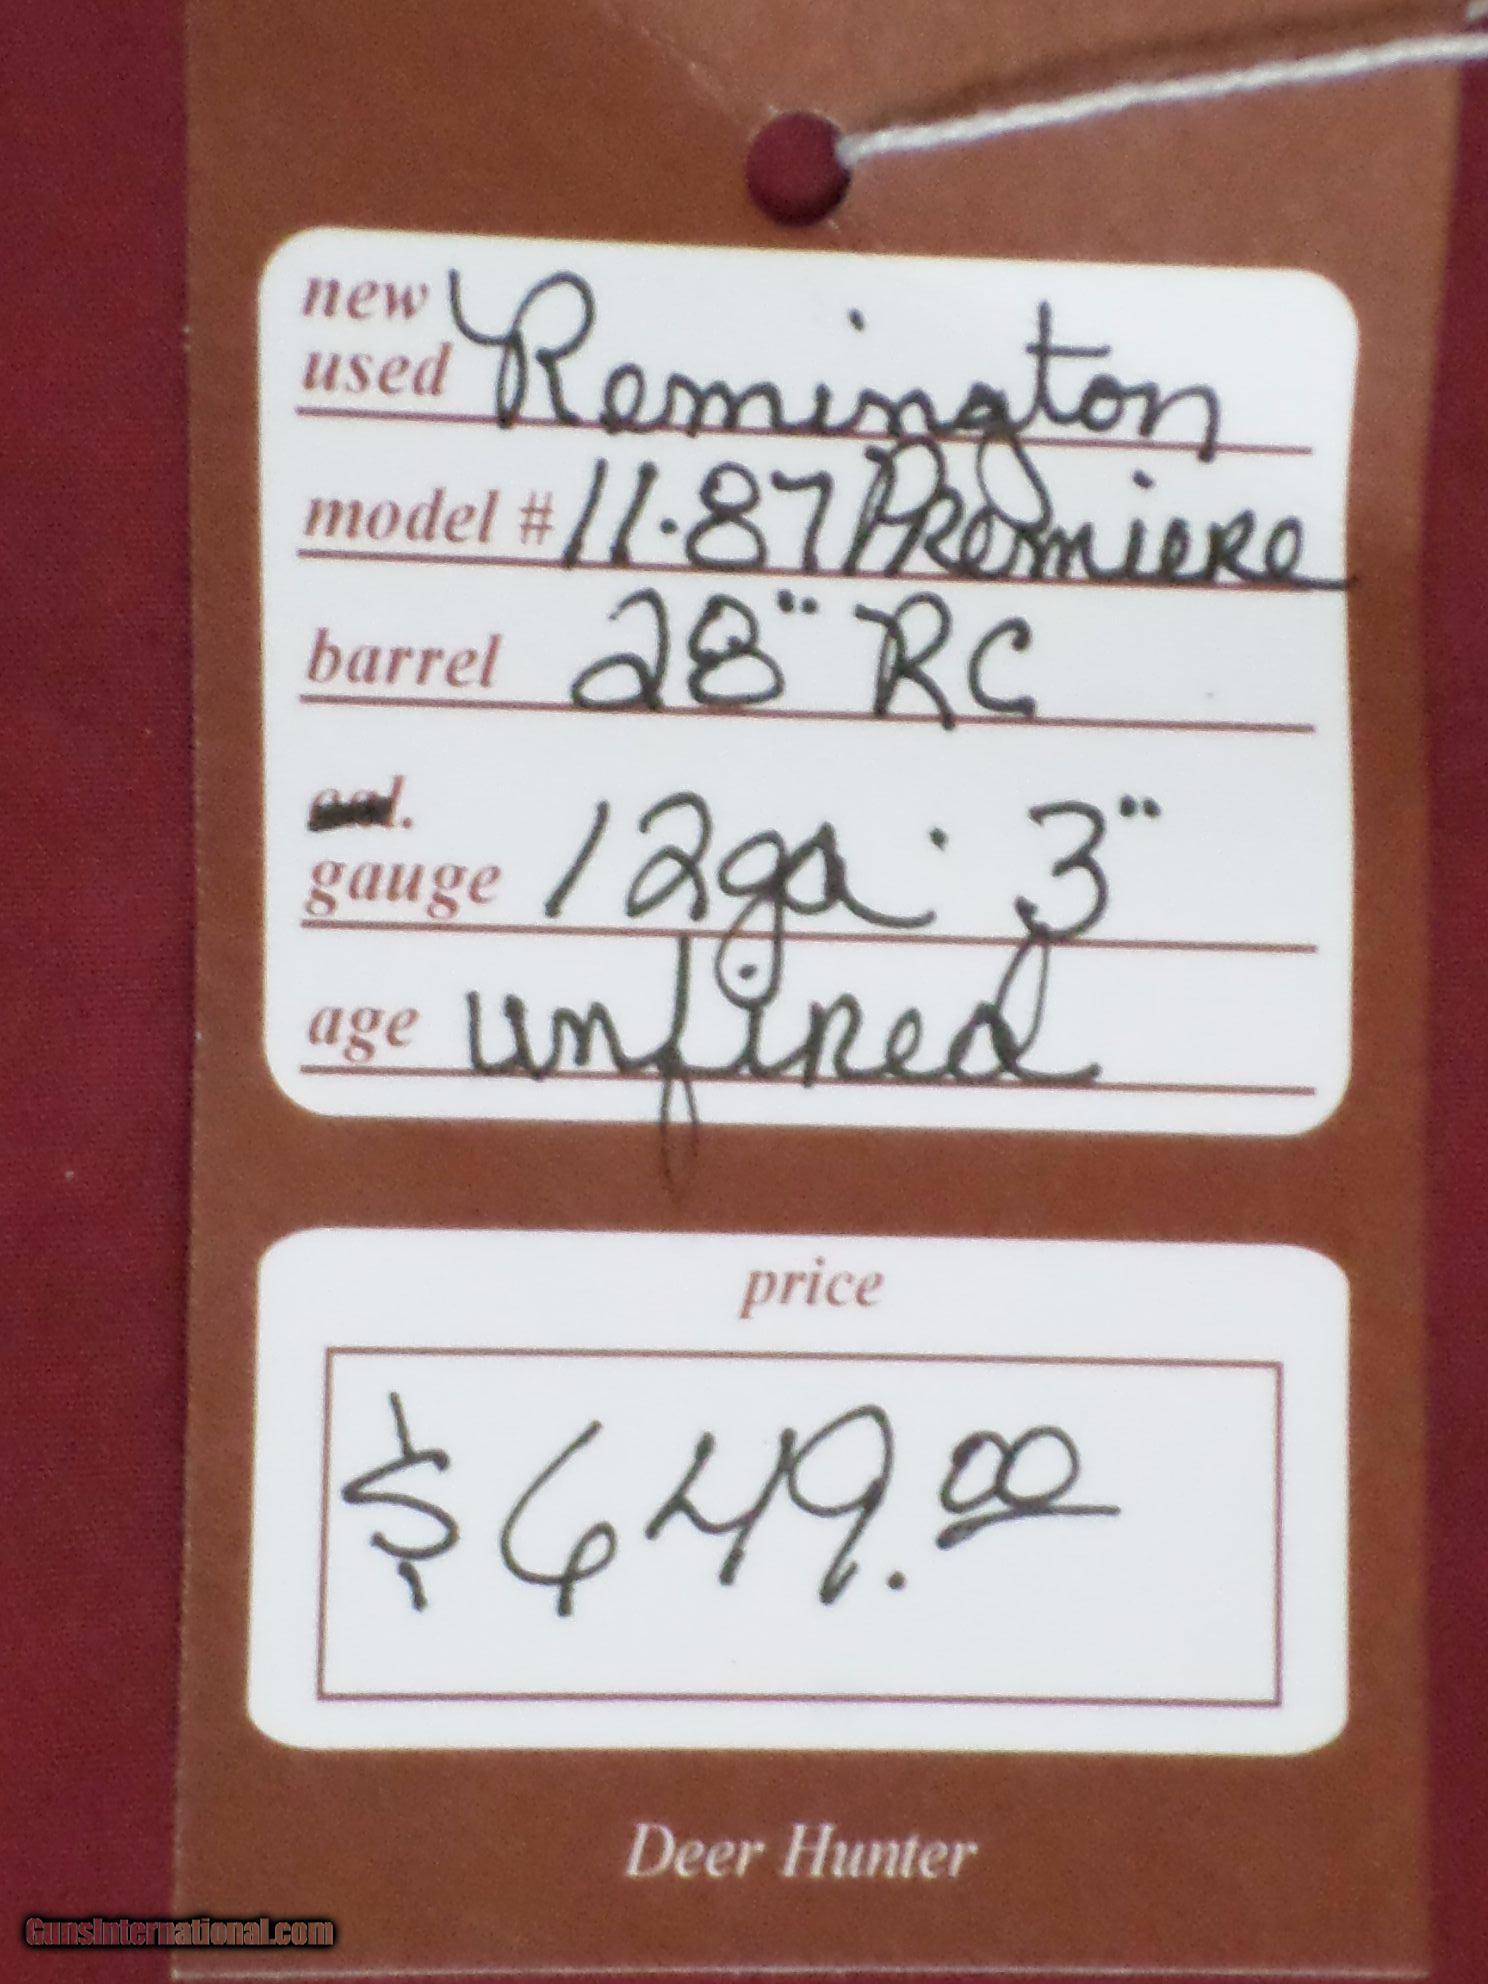 new
used Remington
model # 11.87 Premiere
barrel 28" RC
cal.
gauge 12ga. 3"
age unfired
price
$649.00
Deer Hunter
GunsInternational.com